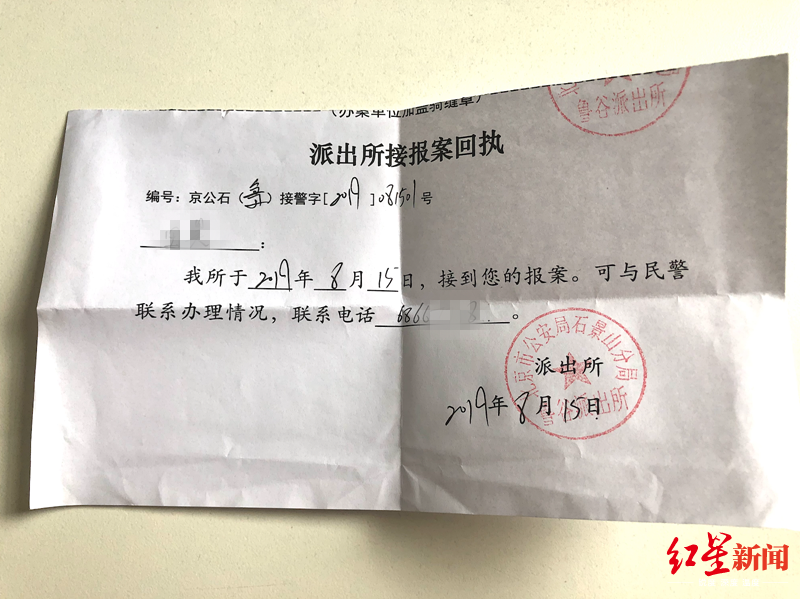 (办案单位加盖骑缝章)
鲁谷派出所
派出所接报案回执
编号：京公石（鲁）接警字[2019]081501号
：
我所于2019年8月15日，接到您的报案。可与民警
联系办理情况，联系电话686。
北京市公安局石景山分局
鲁谷派出所
派出所
2019年8月15日
红星新闻